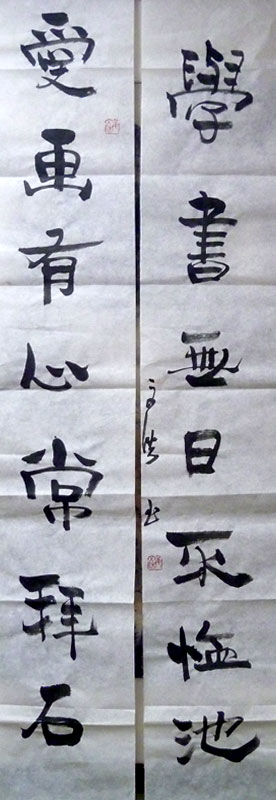 學書無日不臨池
愛画有心常拜石